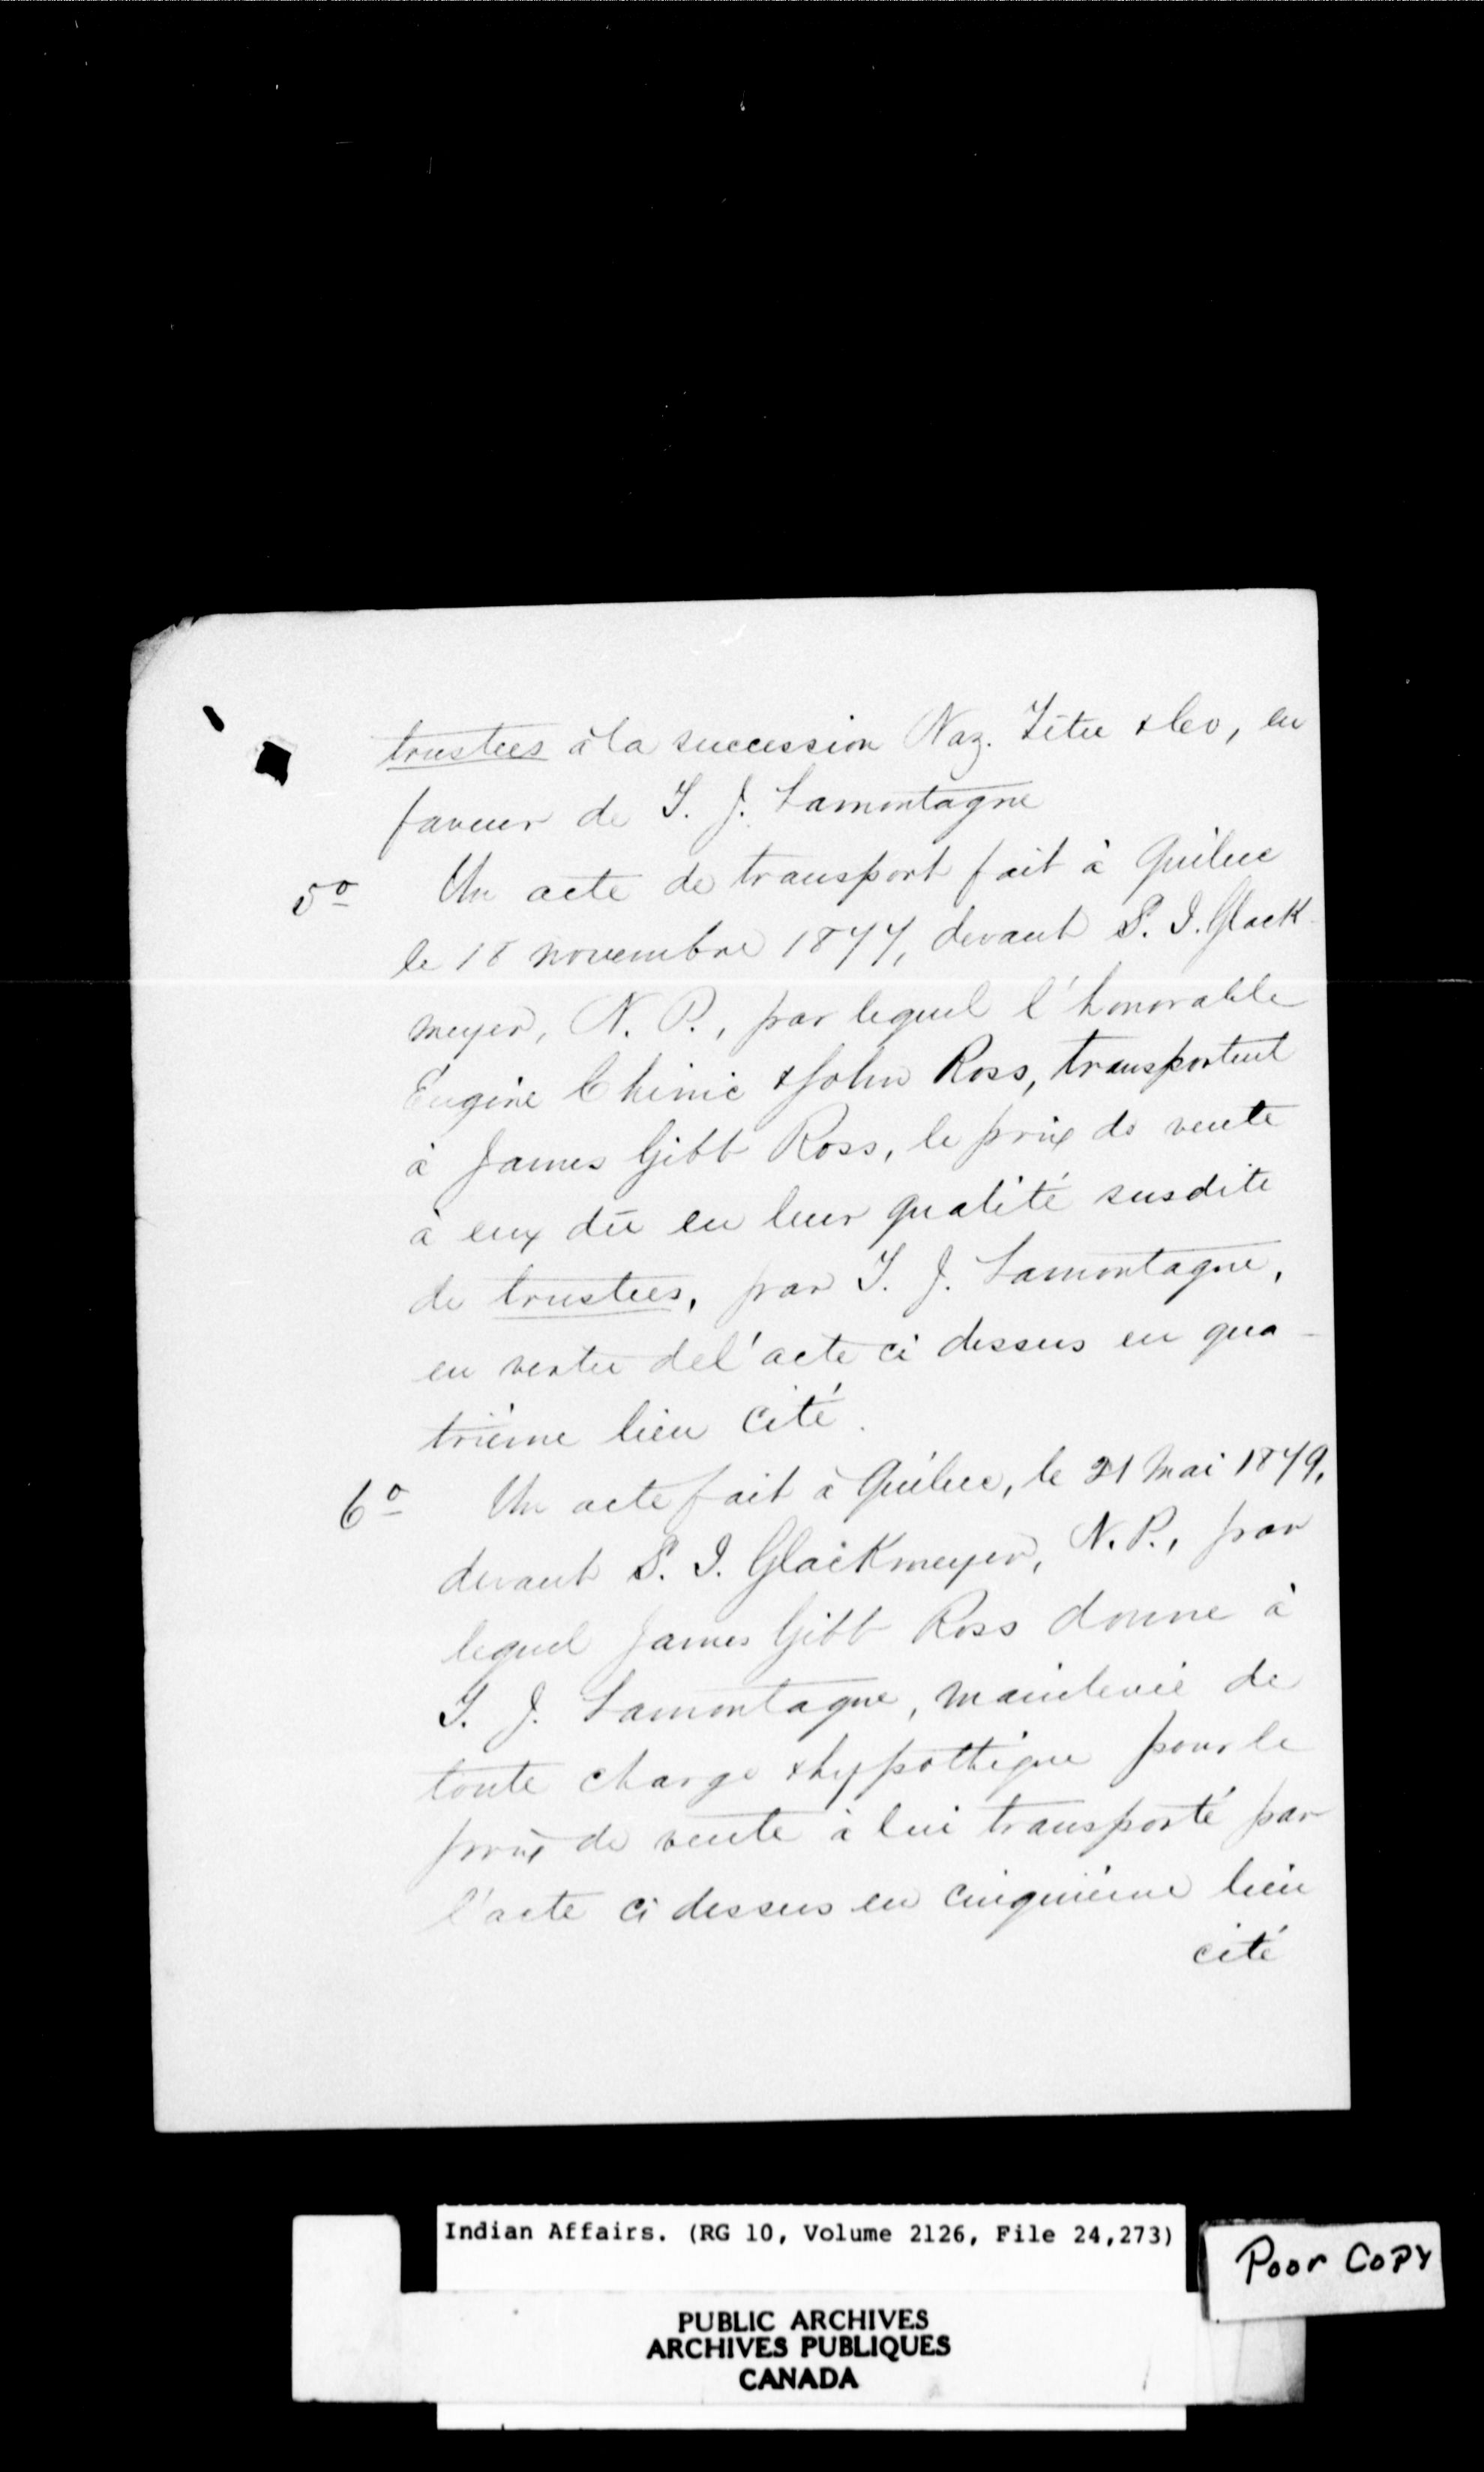 trustees à la succession Naz. Têtu & Co, en
faveur de T. J. Lamontagne
5º Un acte de transport fait à Québec
le 18 novembre 1877, devant S. I. Glack-
meyer, N. P., par lequel l'honorable
Eugène Chinic & John Ross, transportent
à James Gibb Ross, le prix de vente
à eux dû en leur qualité susdite
de trustees, par T. J. Lamontagne,
en vertu de l'acte ci dessus en qua-
trième lieu cité.
6º Un acte fait à Québec, le 21 Mai 1879,
devant S. I. Glackmeyer, N. P., par
lequel James Gibb Ross donne à
T. J. Lamontagne, mainlevée de
toute charge & hypothèque pour le
prix de vente à lui transporté par
l'acte ci dessus en cinquième lieu
cité
Indian Affairs. (RG 10, Volume 2126, File 24,273)
Poor Copy
PUBLIC ARCHIVES
ARCHIVES PUBLIQUES
CANADA